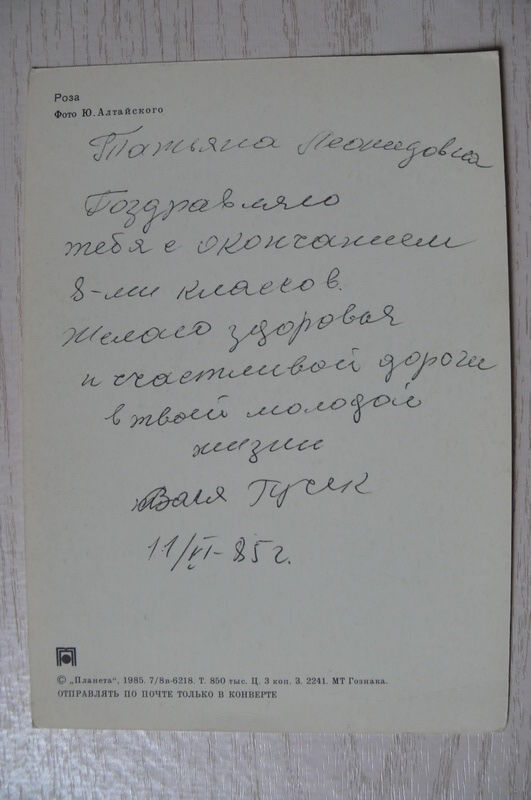 Роза
Фото Ю. Алтайского
Татьяна Леонидовна
Поздравляю
тебя с окончанием
8-ми классов.
Желаю здоровья
и счастливой дороги
в твоей молодой
жизни
Валя
11/VI-85г.
© „Планета“, 1985. 7/8в-6218. Т. 850 тыс. Ц. 3 коп. З. 2241. МТ Гознака.
ОТПРАВЛЯТЬ ПО ПОЧТЕ ТОЛЬКО В КОНВЕРТЕ